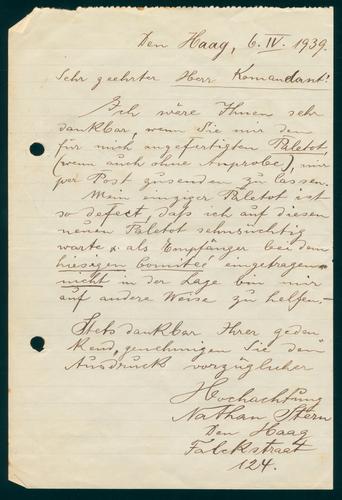 Den Haag, 6. IV. 1939.
Sehr geehrter Herr Komandant!
Ich wäre Ihnen sehr
dankbar, wenn Sie mir den
für mich angefertigten Paletot,
(wenn auch ohne Anprobe), mir
per Post zusenden zu lassen.
Mein einziger Paletot ist
so defect, daß ich auf diesen
neuen Paletot sehnsüchtig
warte & als Empfänger bei dem
hiesigen Comitee eingetragen
nicht in der Lage bin mir
auf andere Weise zu helfen.—
Stets dankbar Ihrer geden
kend, genehmigen Sie den
Ausdruck vorzüglicher
Hochachtung
Nathan Stern
Den Haag
Falckstraat
124.